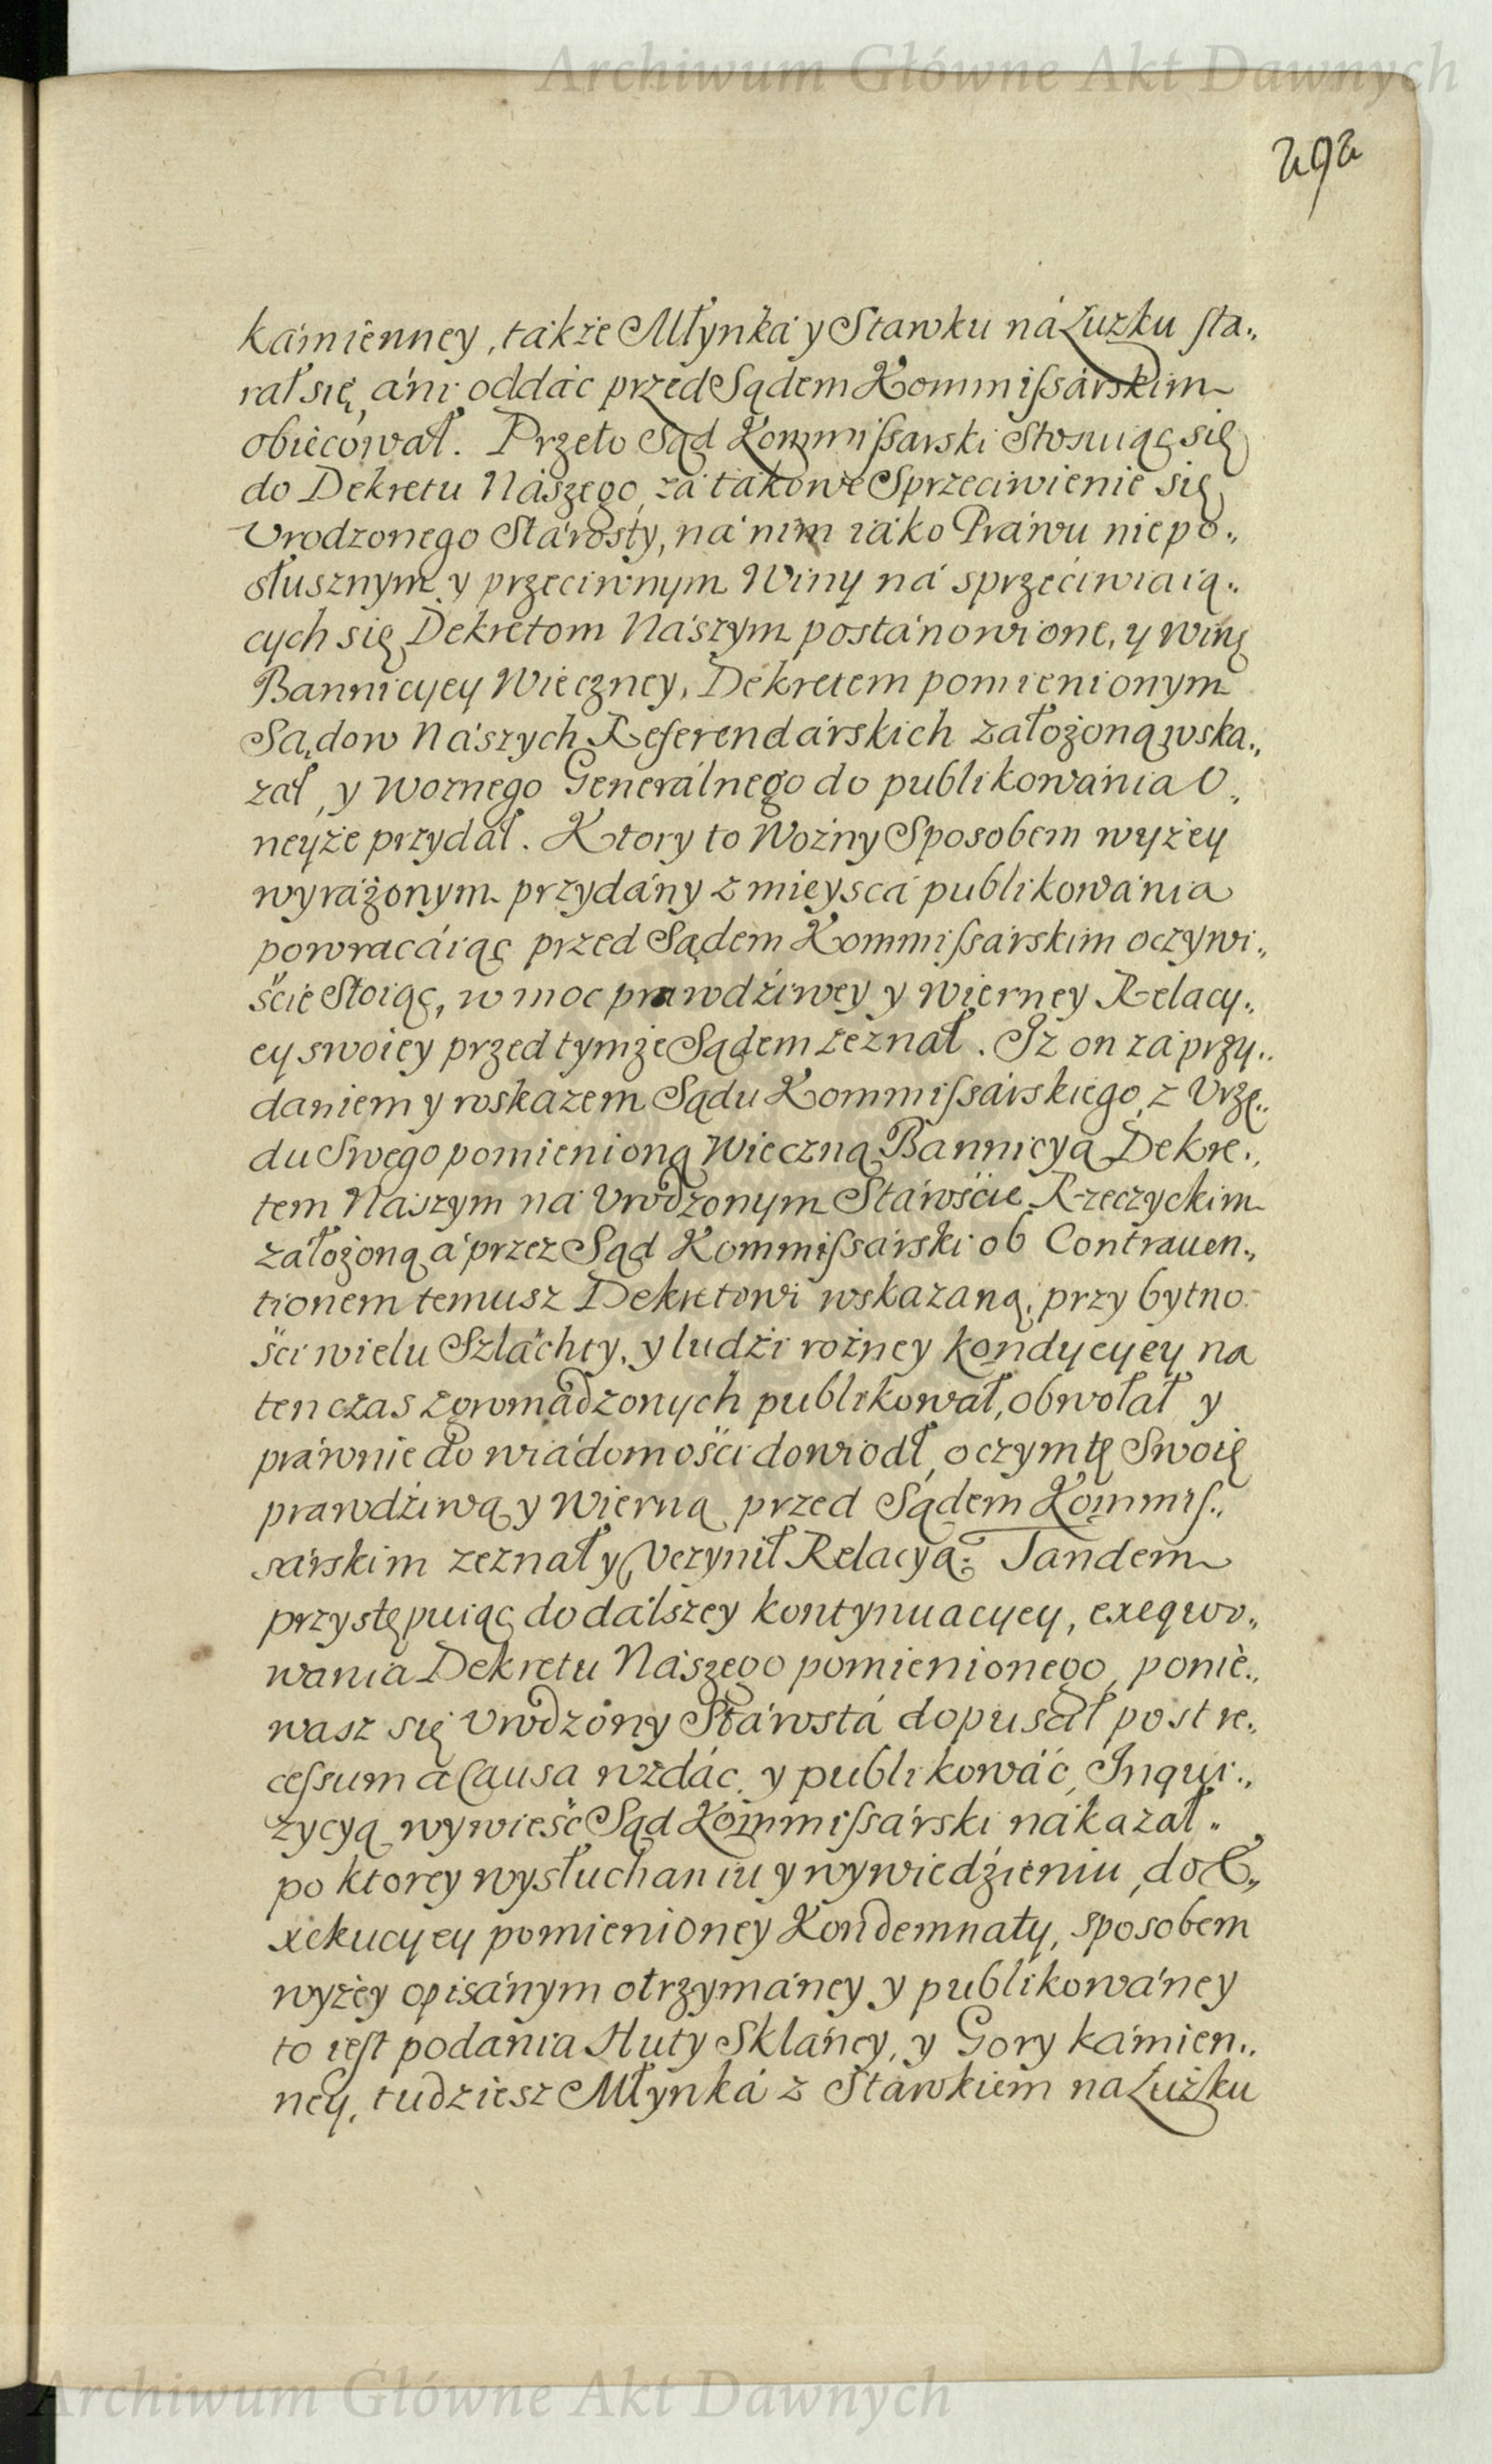 Archiwum Główne Akt Dawnych
292
kámienney, także Młynká y Stawku ná Łużku sta.,
rał się, áni oddáć przed Sądem Kommissárskim
obiecował. Przeto Sąd Kommissarski Stosuiąc się
do Dekretu Nászego, zá takowe Sprzeciwienie się
Vrodzonego Stárosty, ná nim iáko Práwu niepo.,
słusznym y przeciwnym Winy ná sprzeciwiaią.,
cych się Dekretom Nászym postánowione, y winę
Bannicyey Wieczney, Dekretem pomienionym
Sądow Nászych Referendárskich záłożoną wska.,
zał, y Woznego Generálnego do publikowánia O.,
neyże przydał. Ktory to Woźny Sposobem wyżey
wyráżonym przydány z mieyscá publikowánia
powracáiąc przed Sądem Kommissárskim oczywi.,
ście Stoiąc, w moc prawdźiwey y wierney Relacy.,
ey swoiey przed tymże Sądem zeznał. Iż on zá przy.,
daniem y wskazem Sądu Kommissárskiego, z Vrzę.,
du Swego pomienioną Wieczną Bannicyą Dekre.,
tem Nászym ná Vrodzonym Stárośćie Rzeczyckim
záłożoną á przez Sąd Kommissárski ob Contrauen.,
tionem temusz Dekretowi wskazaną, przy bytno
ści wielu Szláchty, y ludźi rożney kondycyey na
ten czas zgromádzonych publikował, obwołał y
práwnie do wiádomości dowiodł, o czym tę Swoię
prawdźiwą y Wierną przed Sądem Kommis.,
sárskim zeznał y Vczynił Relacyą. Tandem
przystępuiąc do dálszey kontynuacyey, exeqwo.,
wania Dekretu Nászego pomienionego, ponie.,
wasz się Vrodzony Stárostá dopuśćił post re.,
cessum a Causa wzdáć y publikowáć, Inqui.,
zycyą wywieść Sąd Kommissárski nákazał.,
po ktorey wysłuchaniu y wywiedźieniu, do E.,
xekucyey pomienioney Kondemnaty, sposobem
wyżey opisánym otrzymáney y publikowáney
to iest podania Huty Skláney, y Gory kámien.,
ney, tudziesz Młynká z Stáwkiem na Łużku
Archiwum Główne Akt Dawnych